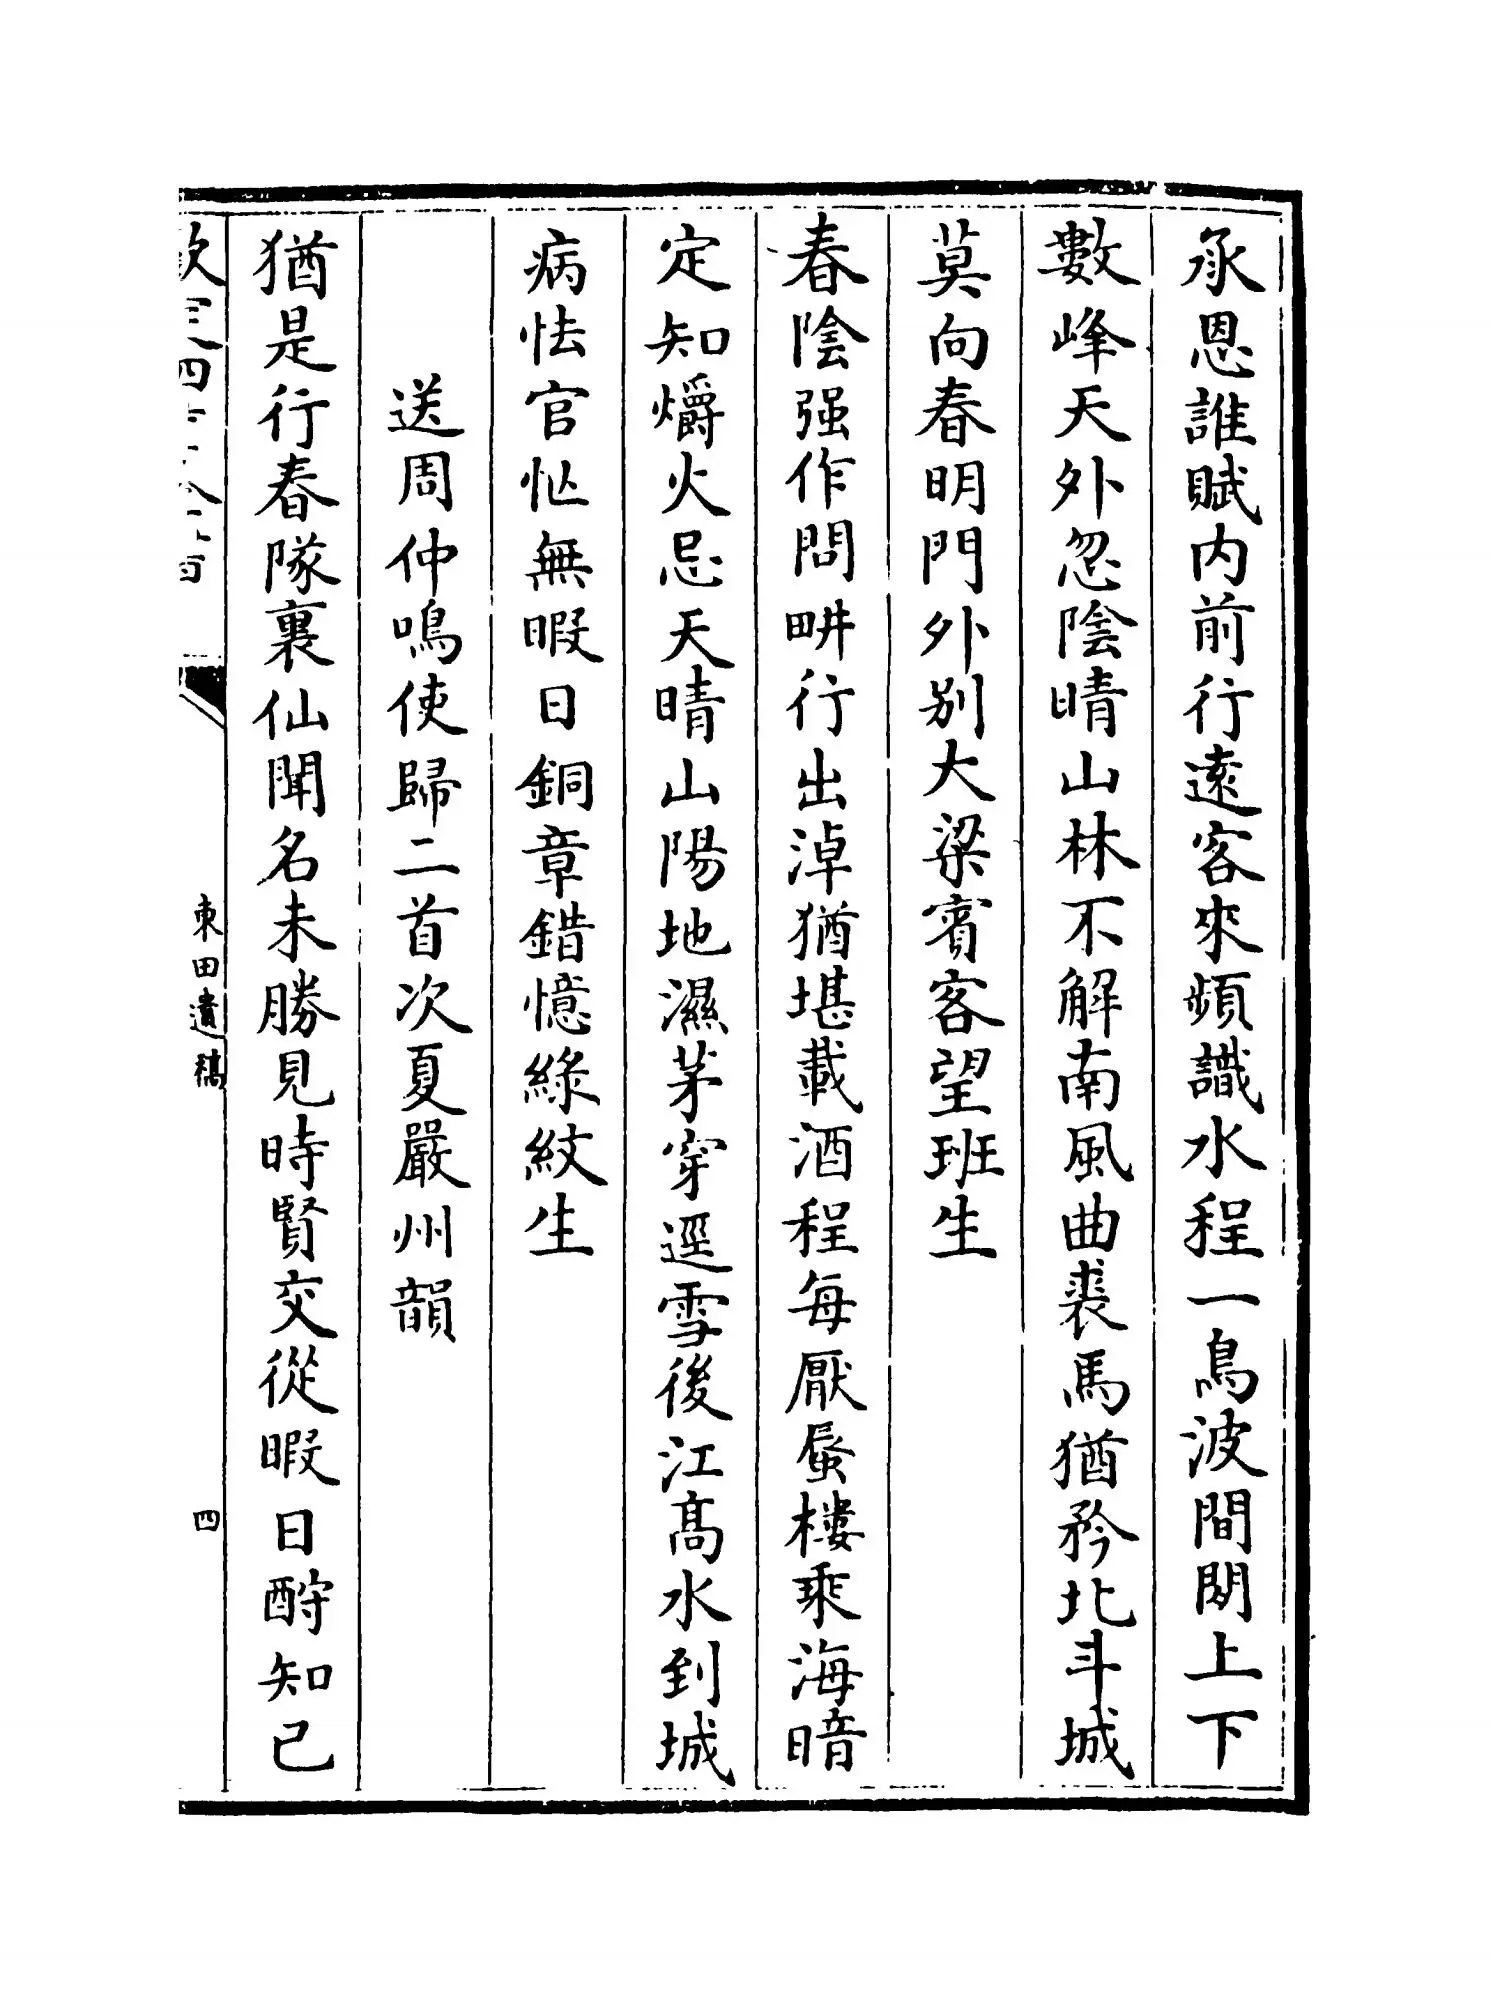 承恩誰賦内前行遠客來頻識水程一鳥波間閒上下
數峰天外忽陰晴山林不解南風曲裘馬猶矜北斗城
莫向春明門外別大梁賔客望班生
春陰强作問畊行出淖猶堪載酒程每厭蜃樓乘海暗
定知爝火忌天晴山陽地濕茅穿逕雪後江髙水到城
病怯官忙無暇日銅章錯憶綠紋生
送周仲鳴使歸二首次夏嚴州韻
猶是行春隊裏仙聞名未勝見時賢交從暇日酧知己
東田遺稿
四